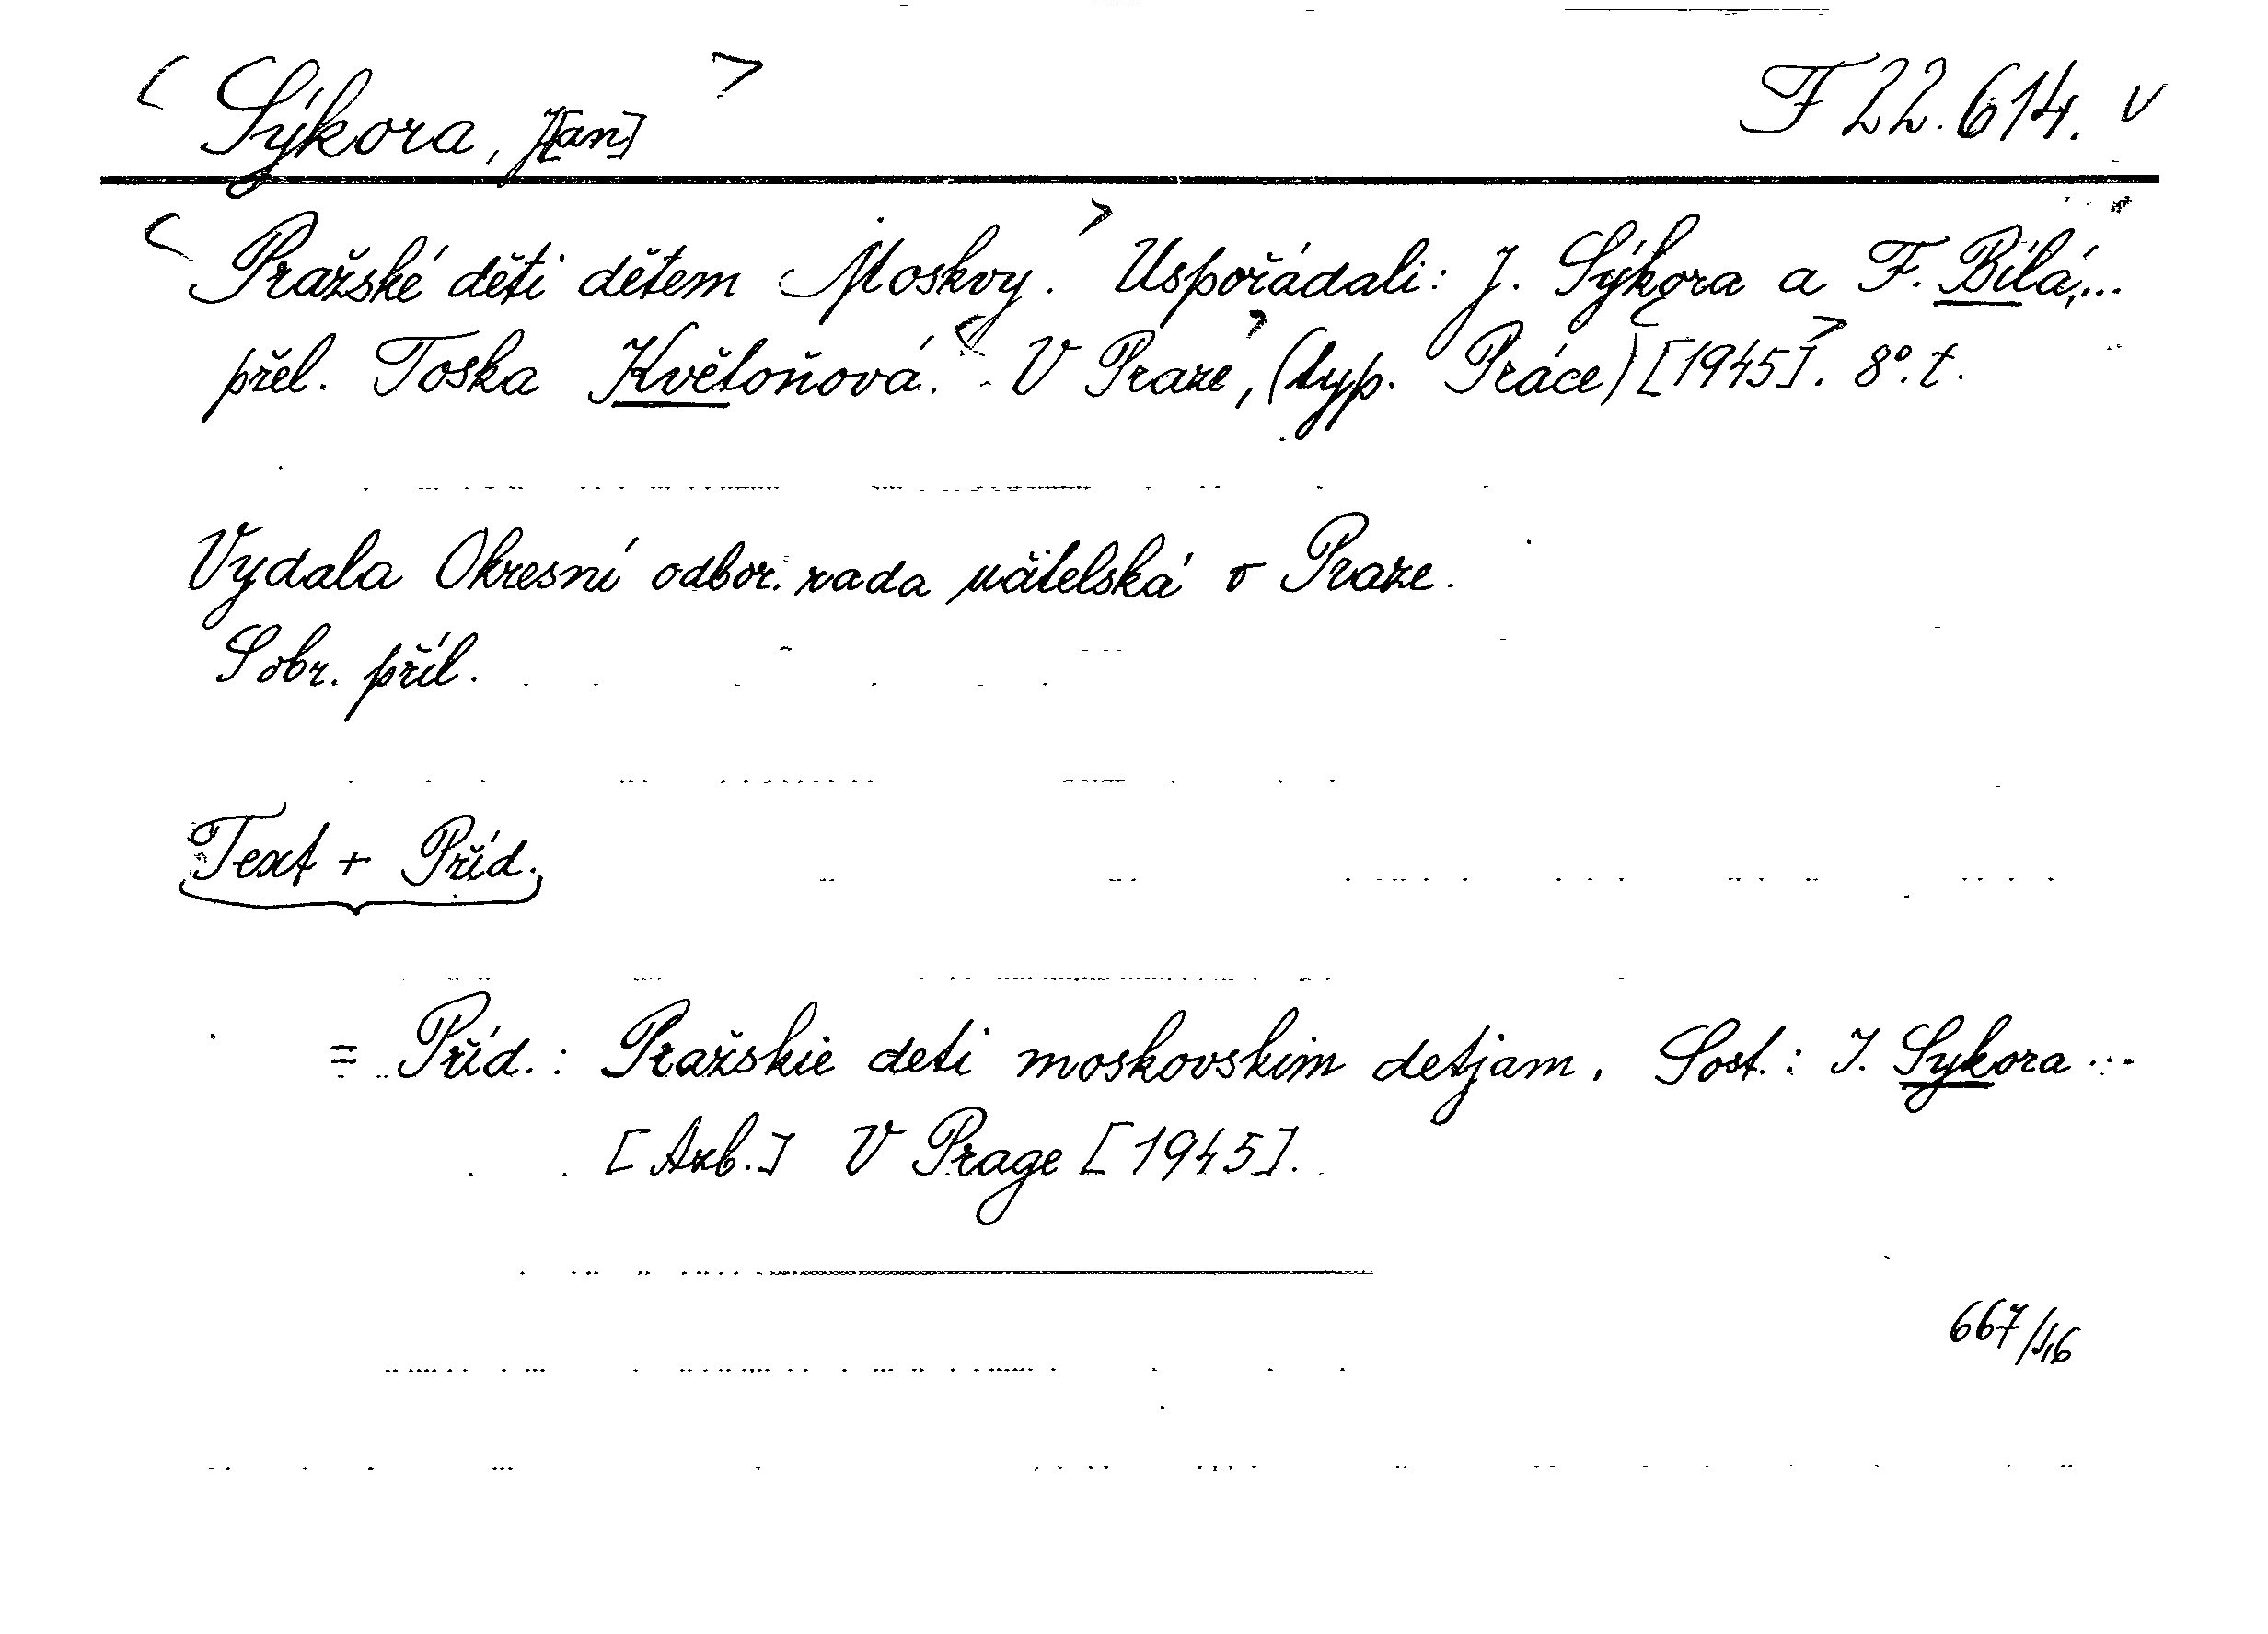 < Sýkora, J[an] > F 22.614. v
< Pražské děti dětem Moskvy. > Uspořádali: J. Sýkora a F. Bílá,...
přel. Toska Květoňová. < V Praze, > (typ. Práce) [1945]. > 8°. t.
Vydala Okresní odbor. rada učitelská v Praze.
S obr. příl.
Text + Příd.
= Příd.: Pražskie deti moskovskim detjam. Sost.: I. Sykora ...
[Azb.] V Prage [1945].
667/46